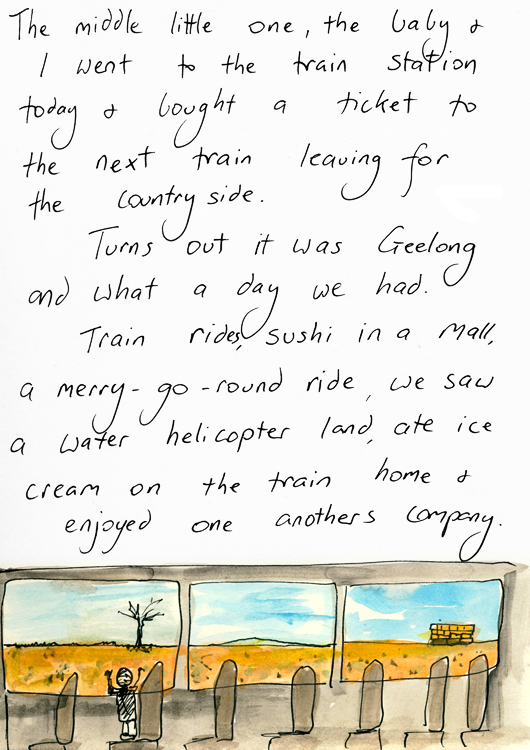 The middle little one, the baby &
I went to the train station
today & bought a ticket to
the next train leaving for
the country side.
Turns out it was Geelong
and what a day we had.
Train rides, sushi in a mall,
a merry-go-round ride, we saw
a water helicopter land, ate ice
cream on the train home &
enjoyed one anothers company.